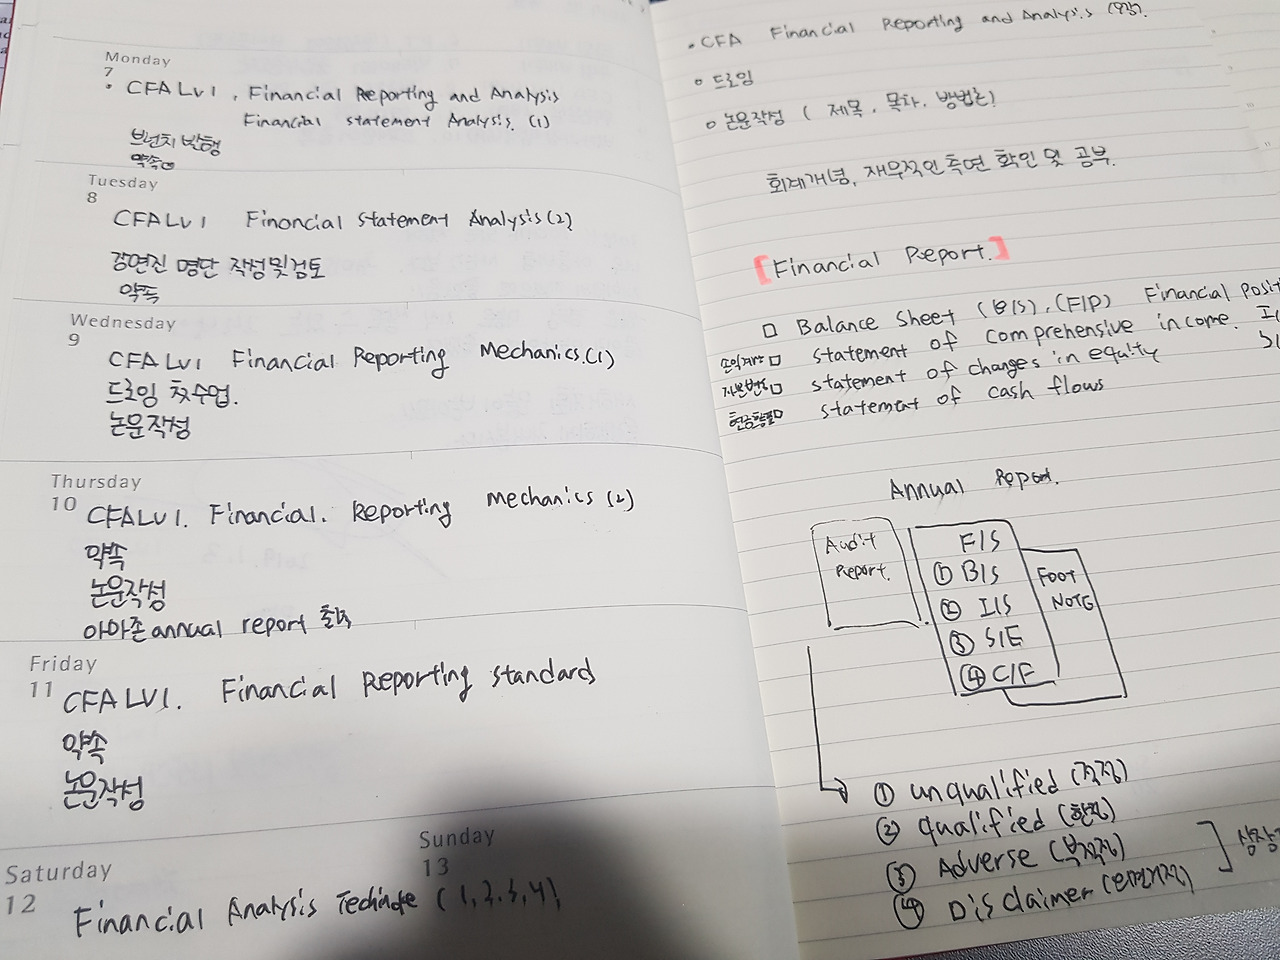 Monday
7
• CFA Lv1, Financial Reporting and Analysis
Financial statement Analysis. (1)
브런치 발행
약속
Tuesday
8
CFA Lv1 Financial statement Analysis (2)
강연진 명단 작성 및 검토
약속
Wednesday
9
CFA Lv1 Financial Reporting Mechanics. (1)
드로잉 첫수업.
논문작성
Thursday
10
CFA Lv1. Financial. Reporting Mechanics (2)
약속
논문작성
아마존 annual report
Friday
11
CFA LV1. Financial Reporting standards
약속
논문작성
Saturday
12
Sunday
13
Financial Analysis (1, 2, 3, 4)
• CFA Financial Reporting and Analysis
○ 드로잉
○ 논문작성 ( 제목, 목차, 방법론)
회계개념, 재무적인 측면 확인 및 공부.
[Financial Report.]
□ Balance Sheet (B/S), (F/P) Financial Posit
손익계산 □ statement of comprehensive income.
자본변동 □ statement of changes in equity
현금흐름 □ statement of cash flows
Annual Report.
Audit
Report.
F/S
① B/S
② I/S
③ S/E
④ C/F
FOOT
NOTE
① unqualified (적정)
② qualified (한정)
③ Adverse (부적정)
④ Disclaimer (의견거절)